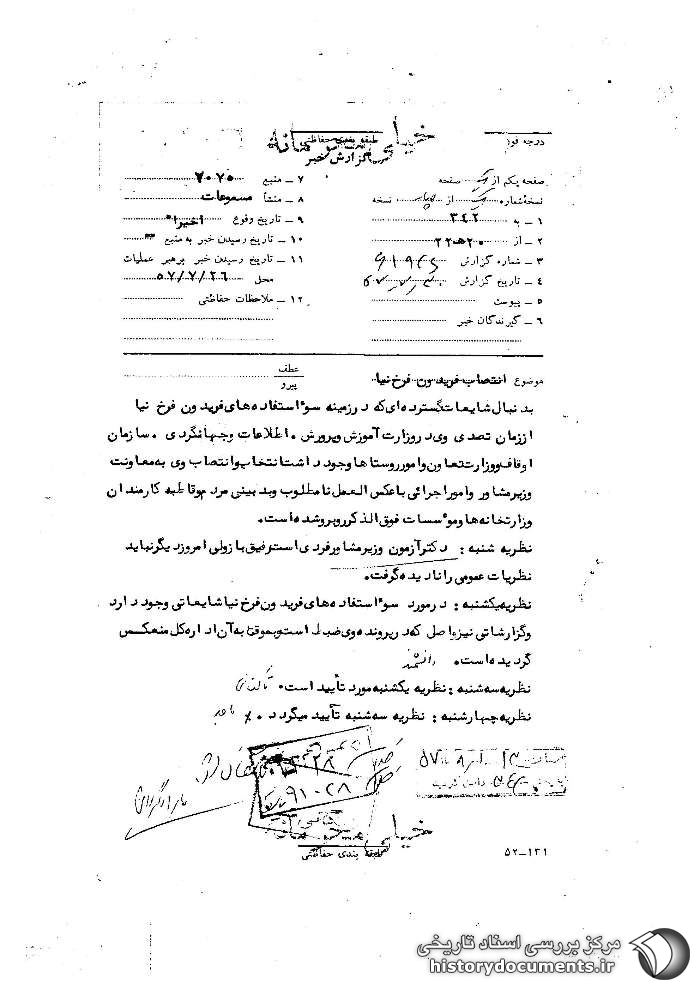 درجه فور
طبقه بندی حفاظتی
خیلی محرمانه
گزارش خبر
صفحه یکم از یک صفحه
نسخه شماره یک از چهار نسخه
۱ – به ۳۴۲
۲ – از ۲۰ هـ ۲۲
۳ – شماره گزارش
۴ – تاریخ گزارش
۵ – پیوست
۶ – گیرندگان خبر
۷ – منبع ۷۰۷۵
۸ – منشأ مسموعات
۹ – تاریخ وقوع اخیراً
۱۰ – تاریخ رسیدن خبر به منبع
۱۱ – تاریخ رسیدن خبر برهبر عملیات
محل ۵۷/۷/۲۶
۱۲ – ملاحظات حفاظتی
موضوع انتصاب فریدون فرخ نیا
عطف
پیرو
بدنبال شایعات گسترده ای که در زمینه سوء استفاده های فریدون فرخ نیا
از زمان تصدی وی در وزارت آموزش و پرورش ، اطلاعات و جهانگردی ، سازمان
اوقاف و وزارت تعاون و امور روستاها وجود داشت انتخاب و انتصاب وی به معاونت
وزیر مشاور و امور اجرائی با عکس العمل نامطلوب و بدبینی مردم و قاطبه کارمندان
وزارتخانه ها و مؤسسات فوق الذکر روبرو شده است.
نظریه شنبه : دکتر آزمون وزیر مشاور فردی است رفیق باز ولی امروز دیگر نباید
نظریات عمومی را نادیده گرفت.
نظریه یکشنبه : در مورد سوء استفاده های فریدون فرخ نیا شایعاتی وجود دارد
و گزارشاتی نیز واصل که در پرونده وی ضبط است و بموقع به آن اداره کل منعکس
گردیده است. دانشمند
نظریه سه شنبه : نظریه یکشنبه مورد تأیید است.
نظریه چهارشنبه : نظریه سه شنبه تأیید میگردد .
۹۱۰۲۸
خیلی محرمانه
طبقه بندی حفاظتی
۵۲–۱۳۱
مرکز بررسی اسناد تاریخی
historydocuments.ir